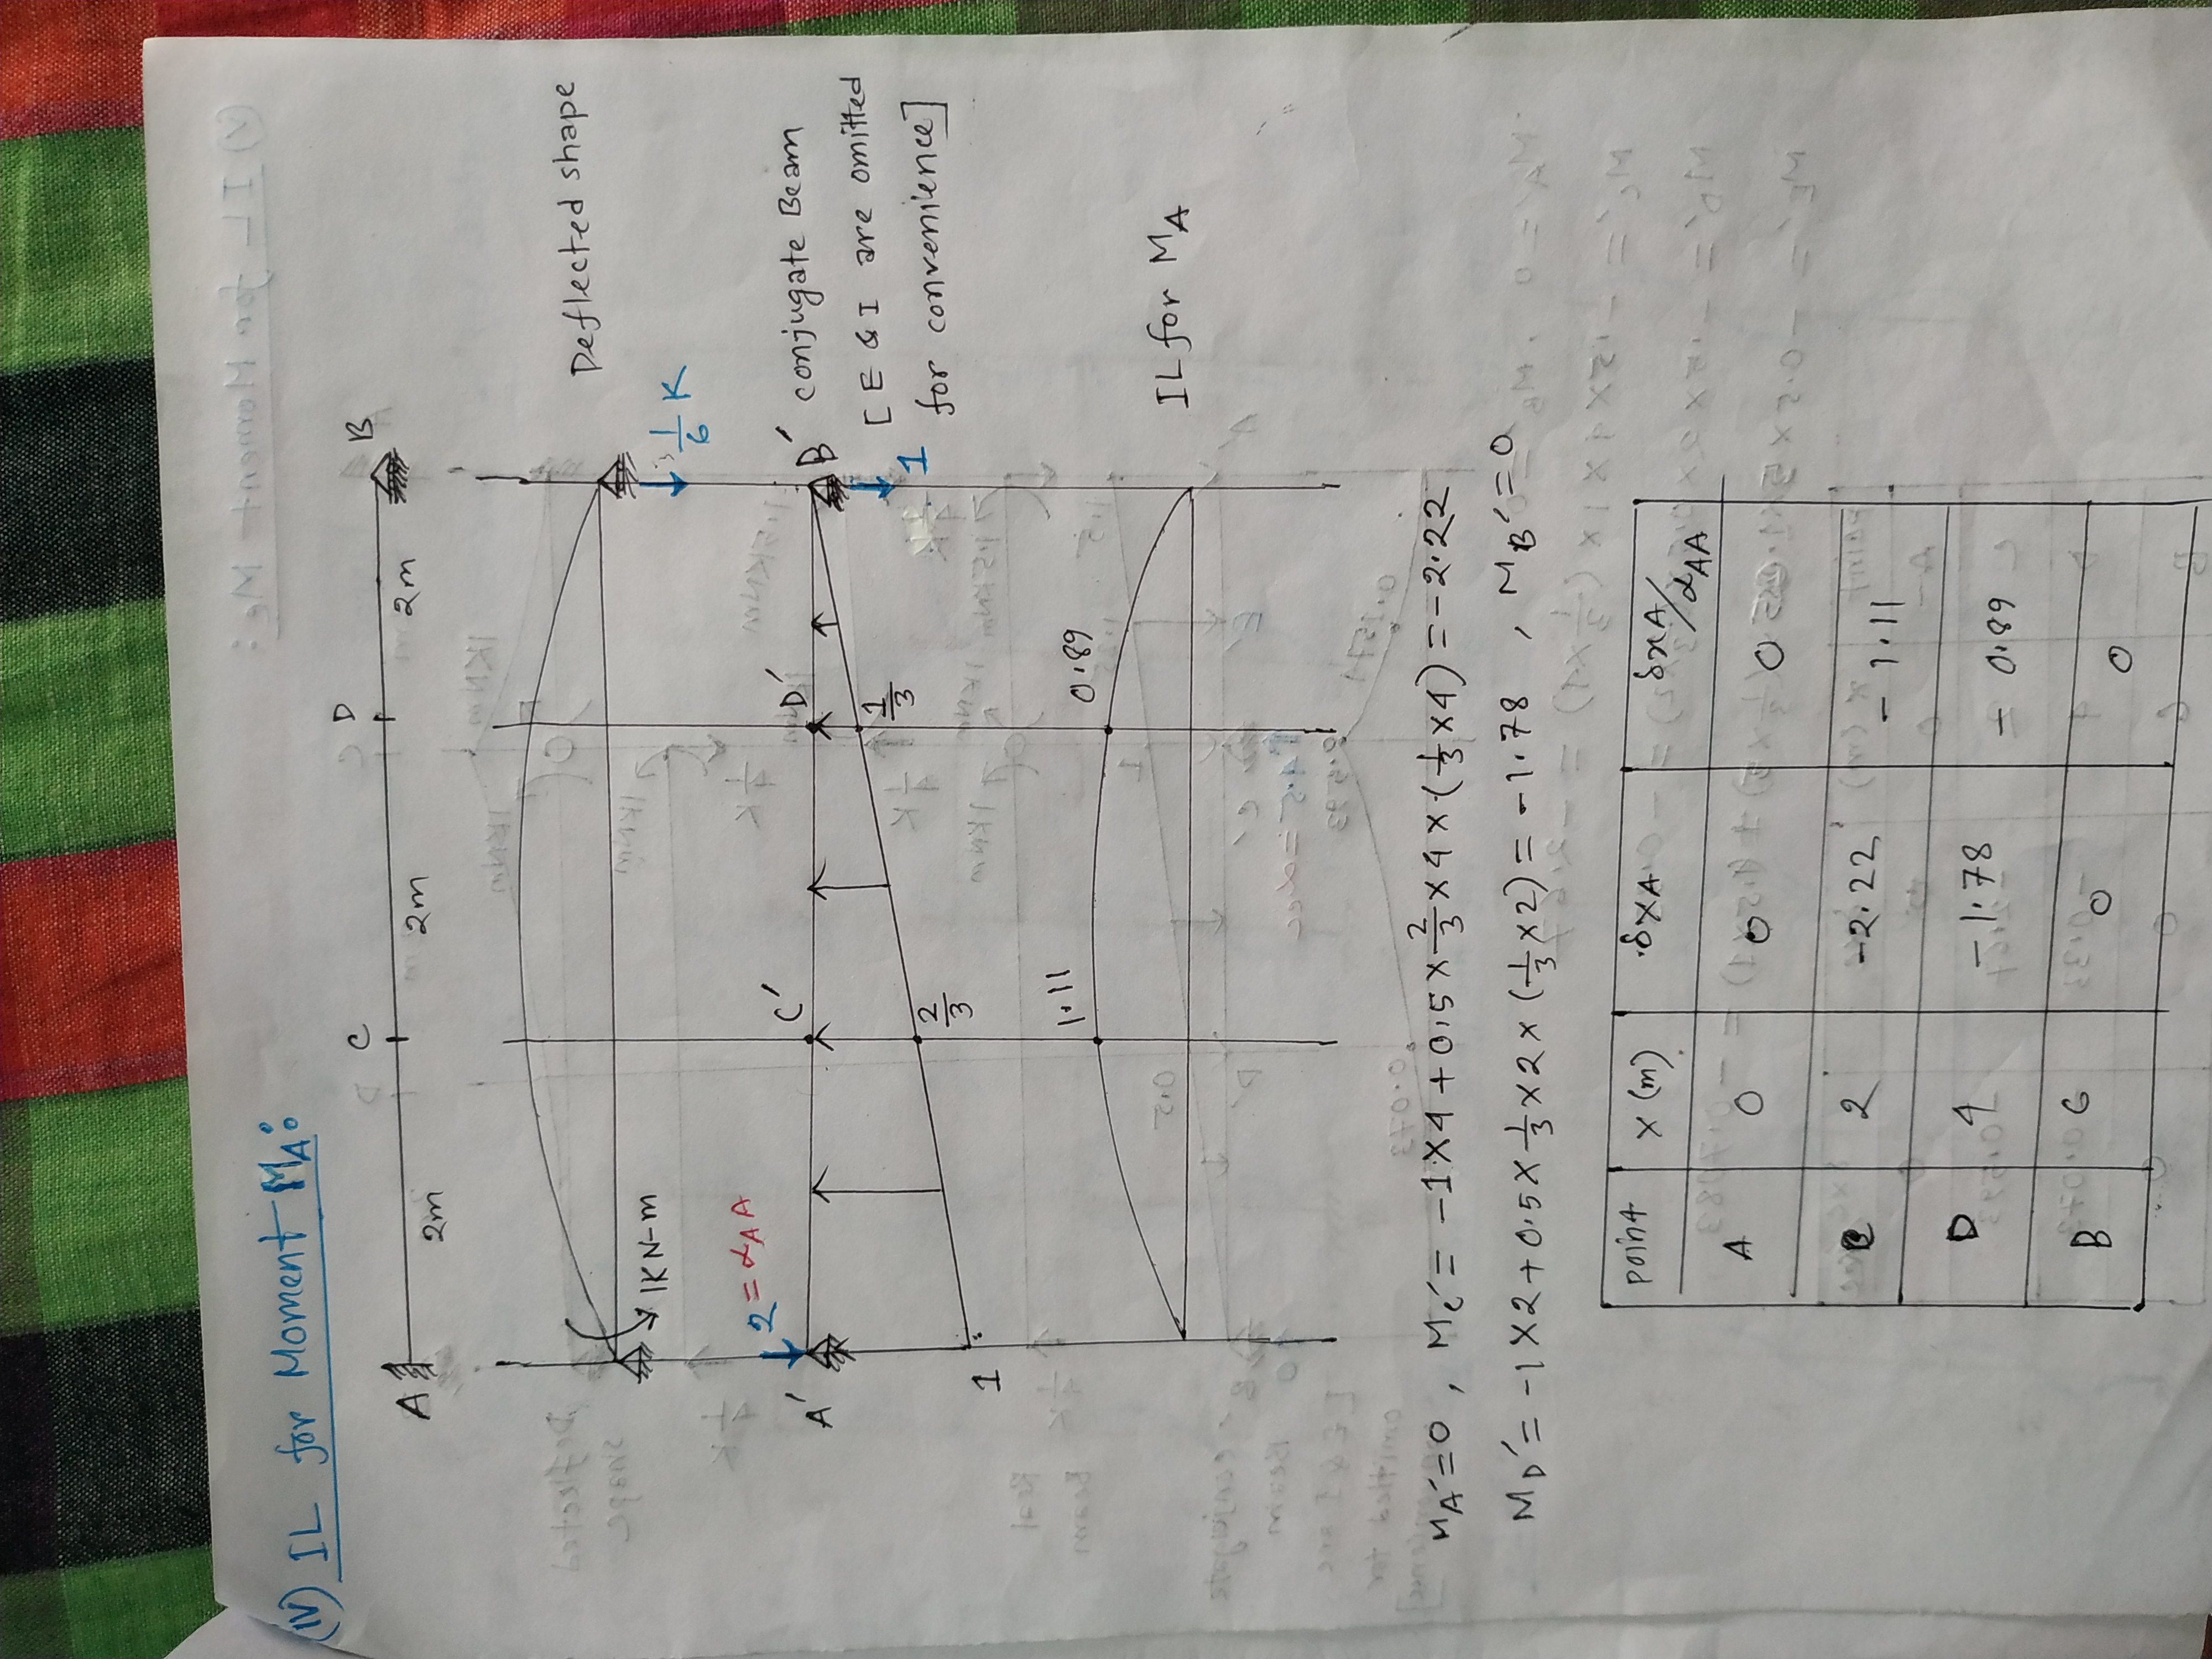 (IV) IL for Moment MA:
A C D B
2m 2m 2m
Deflected shape
1KN-m
1/6 K
2 = αAA
A' C' D' B' conjugate Beam
[E & I are omitted
for convenience]
1
1 2/3 1/3
1.11 0.89
IL for MA
MA'=0, Mc' = -1×4+0.5×2/3×4×(1/3×4) = -2.22
MD' = -1×2+0.5×1/3×2×(1/3×2) = -1.78, MB'=0
point x(m) δxA δxA/αAA
A 0 0 0
C 2 -2.22 -1.11
D 4 -1.78 -0.89
B 6 0 0